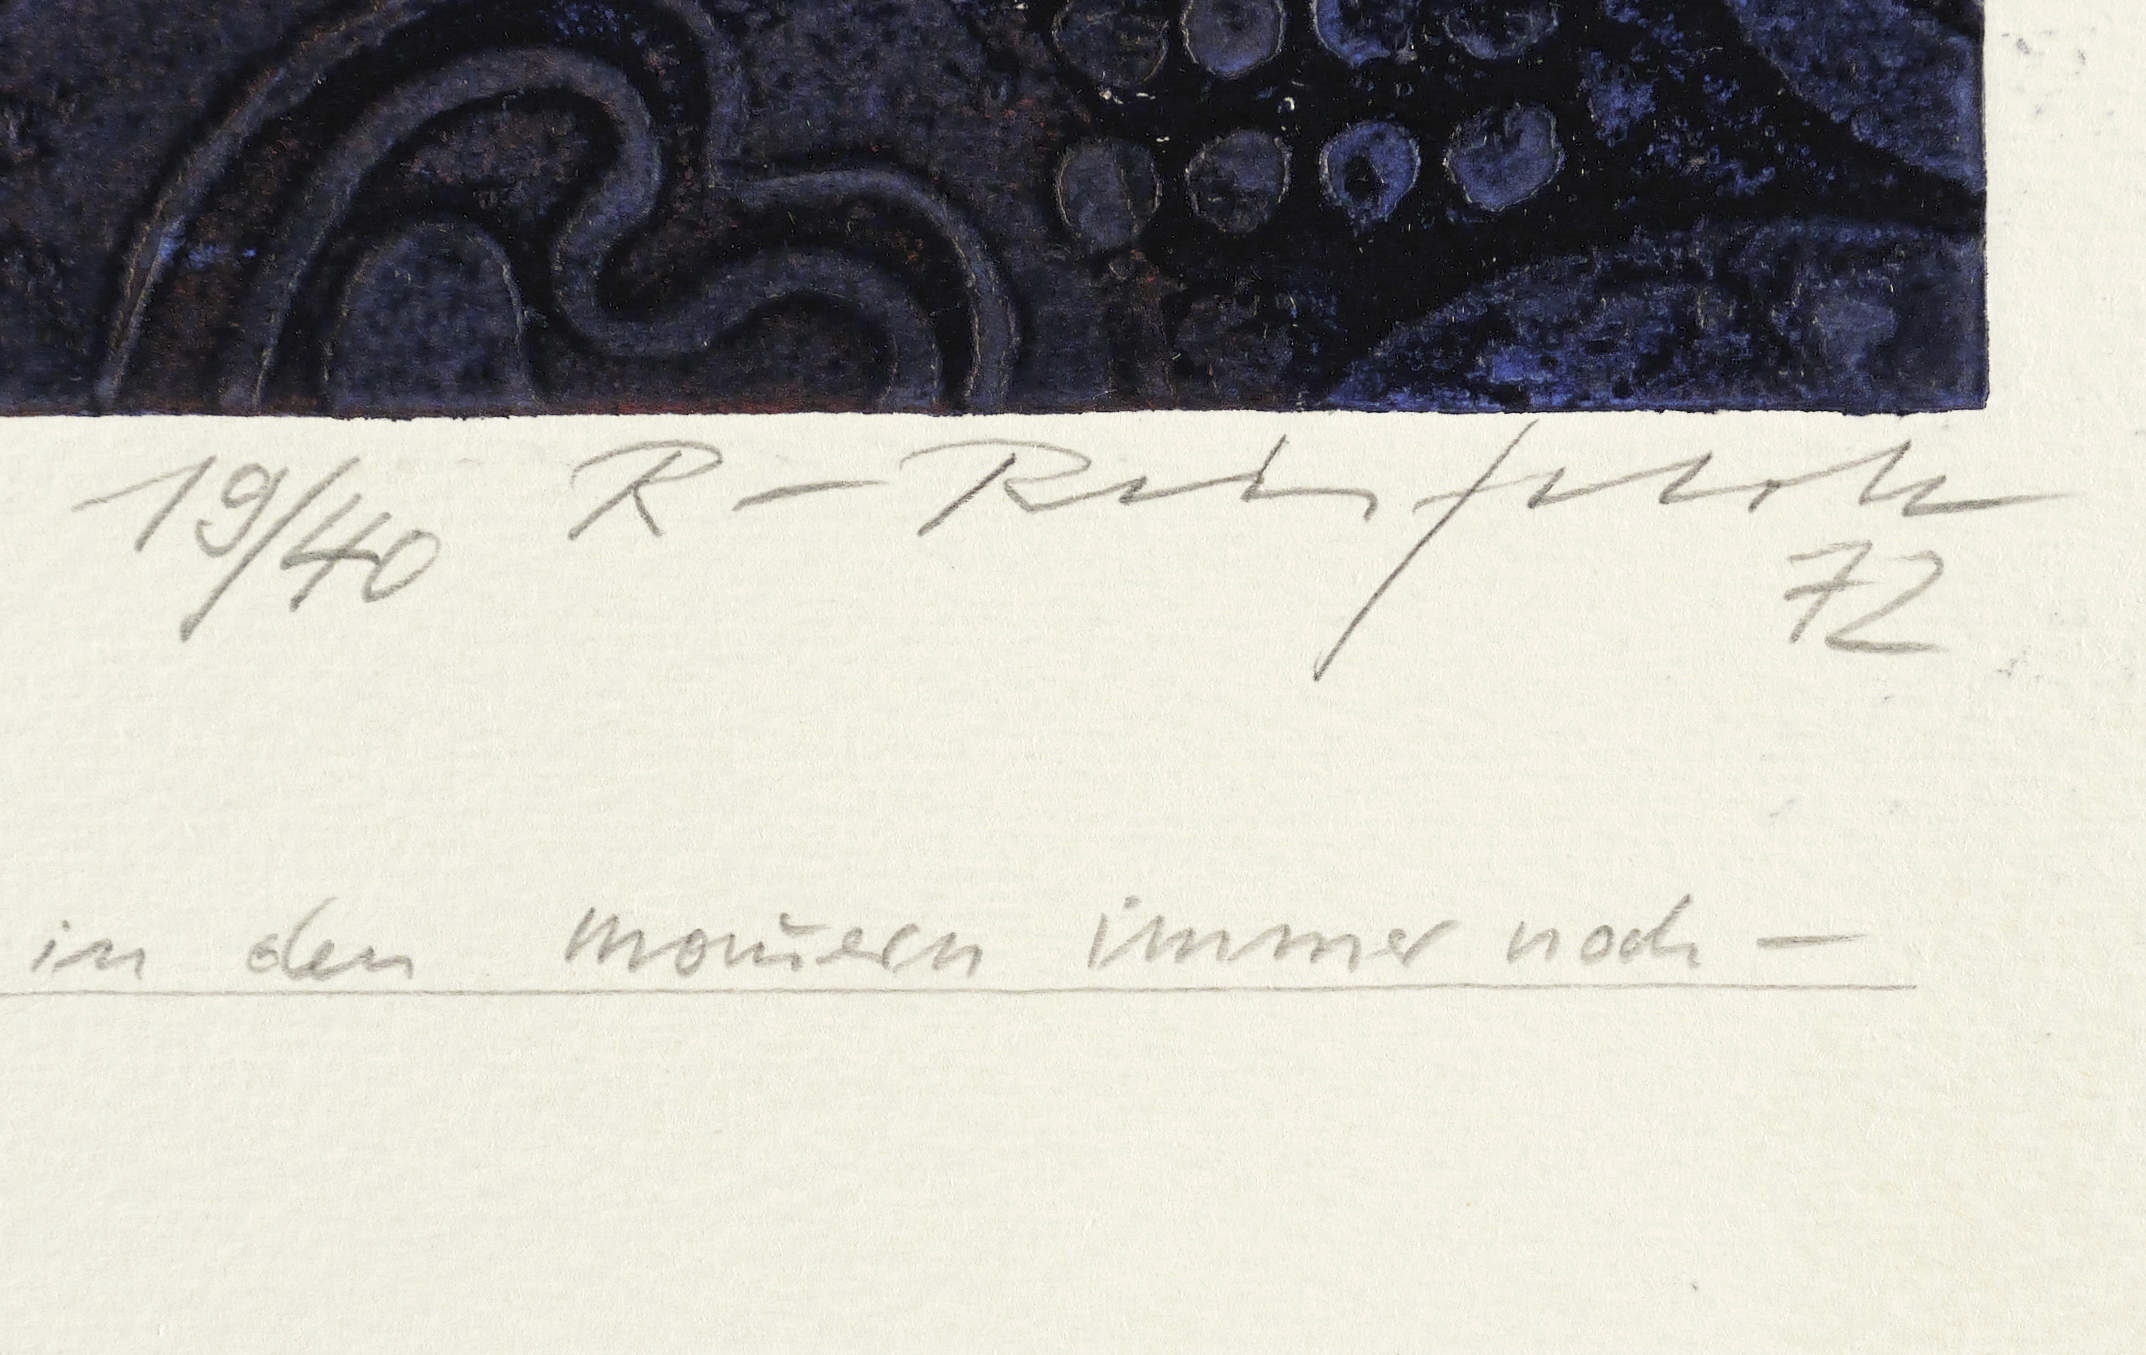 19/40 R - 
72
in den mauern immer noch -